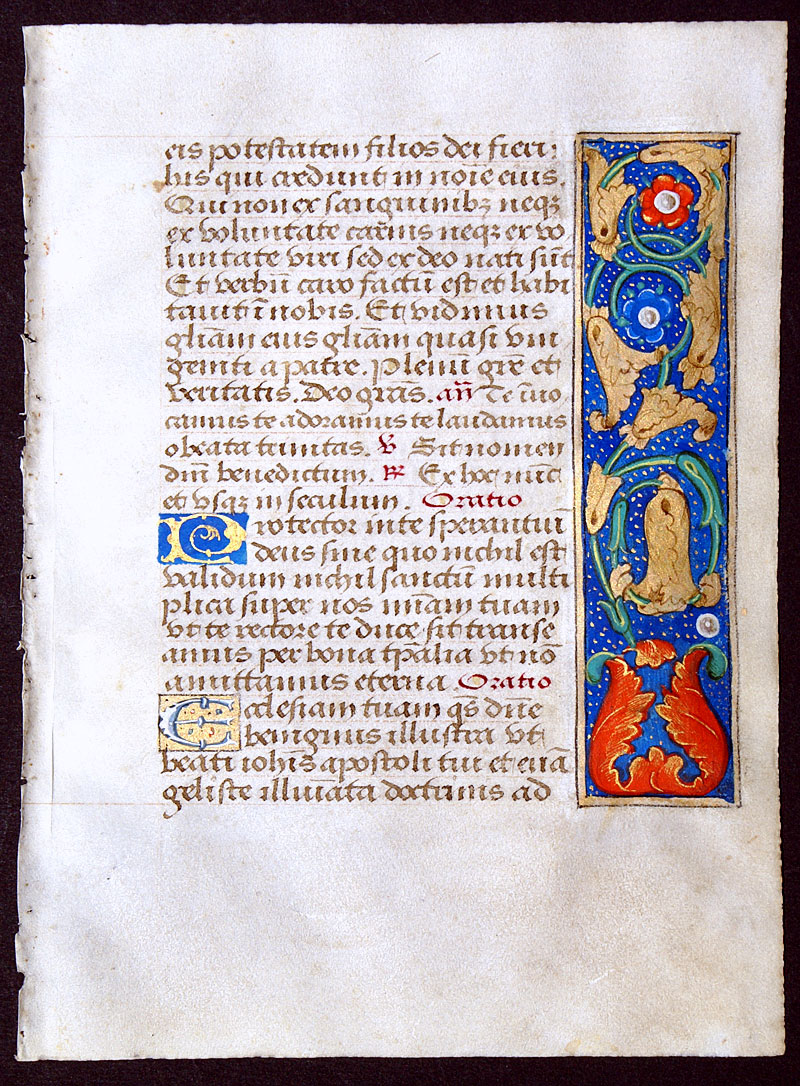 eis potestatem filios dei fieri:
his qui credunt in noīe eius.
Qui non ex sanguinibꝫ neqꝫ
ex voluntate carnis neqꝫ ex vo
luntate viri sed ex deo nati sūt
Et verbū caro factū est et habi
tauit ī nobis. Et vidimus
gliām eius gliām quasi vni
geniti a patre. Plenū grē et
veritatis. Deo grās. añ Te īuo
camus te adoramus te laudamus
o beata trinitas. ℣ Sit nomen
dn̄i benedictum. ℟ Ex hoc nūc
et vsqꝫ in seculum. Oratio
Protector in te sperantiū
deus sine quo nichil est
validum nichil sanctū multi
plica super nos mīam tuam
vt te rectore te duce sic transe
amus per bona tꝑalia vt nō
amittamus eterna. Oratio
Ecclesiam tuam qs̄ dn̄e
benignus illustra vt
beati iohīs apostoli tui et euā
geliste illuīata doctrinis ad